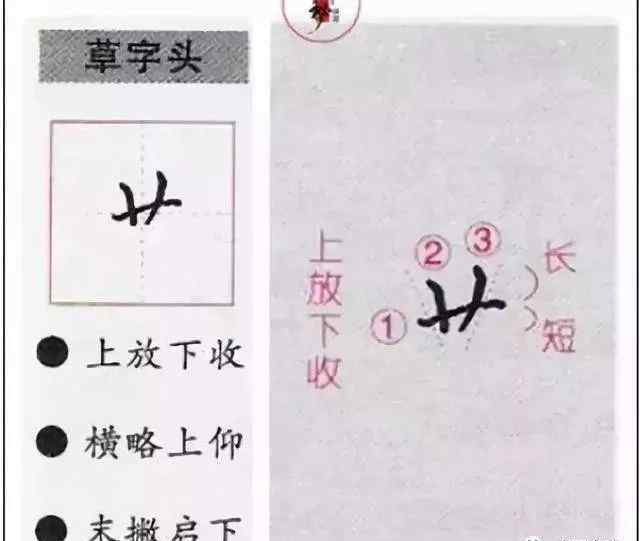 草字头
上放下收
横略上仰
末撇启下
上放下收
①
②
③
长
短